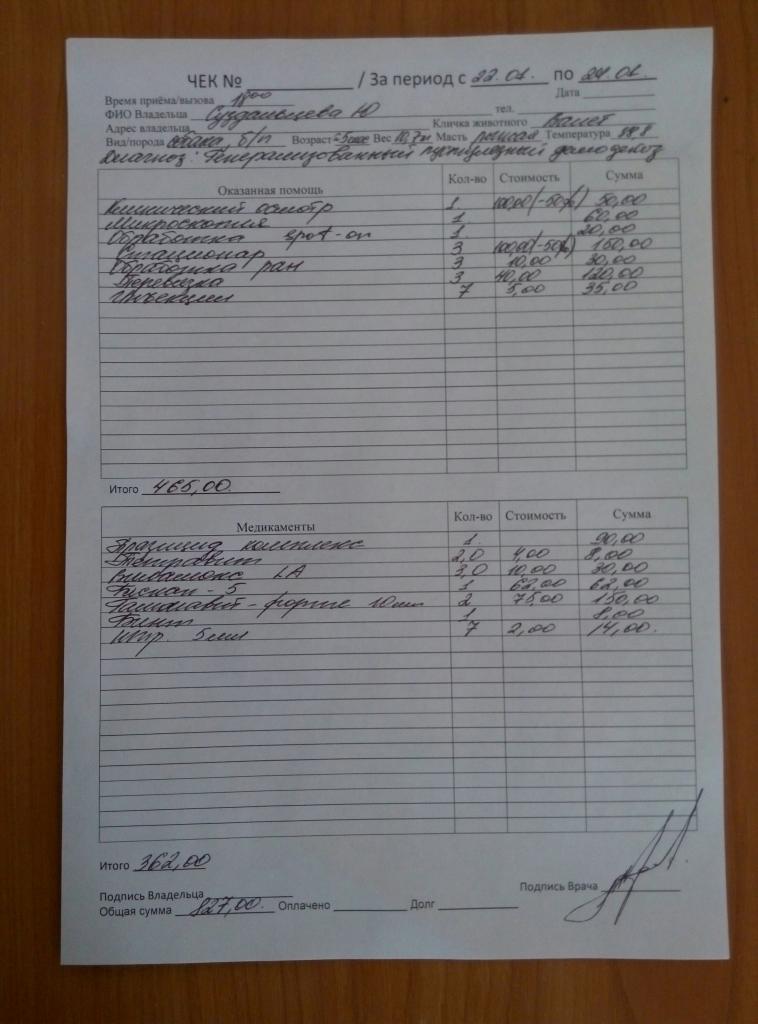 ЧЕК № / За период с 22.01. по 24.01.
Время приёма/вызова 18:00 Дата
ФИО Владельца Суздальцева Ю тел.
Адрес владельца Кличка животного Валет
Вид/порода собака, б/п Возраст Вес 10,7кг Масть рыжая Температура
Диагноз: Генерализованный пустулезный демодекоз
Оказанная помощь Кол-во Стоимость Сумма
Клинический осмотр 1 100,00 (-50%) 50,00
Микроскопия 1 60,00
Обработка spot-on 1 20,00
Стационар 3 100,00 (-50%) 150,00
Обработка ран 3 10,00 30,00
Перевозка 3 40,00 120,00
Инъекции 7 5,00 35,00
Итого 465,00.
Медикаменты Кол-во Стоимость Сумма
Празицид комплекс 1. 90,00
Тетравит 2,0 4,00 8,00
Вивамокс LA 3,0 10,00 30,00
1 62,00 62,00
Гамавит-форте 10мл 2 75,00 150,00
Бинт 1 8,00
Шпр. 5мл 7 2,00 14,00.
Итого 362,00
Подпись Владельца Подпись Врача
Общая сумма 827,00. Оплачено Долг